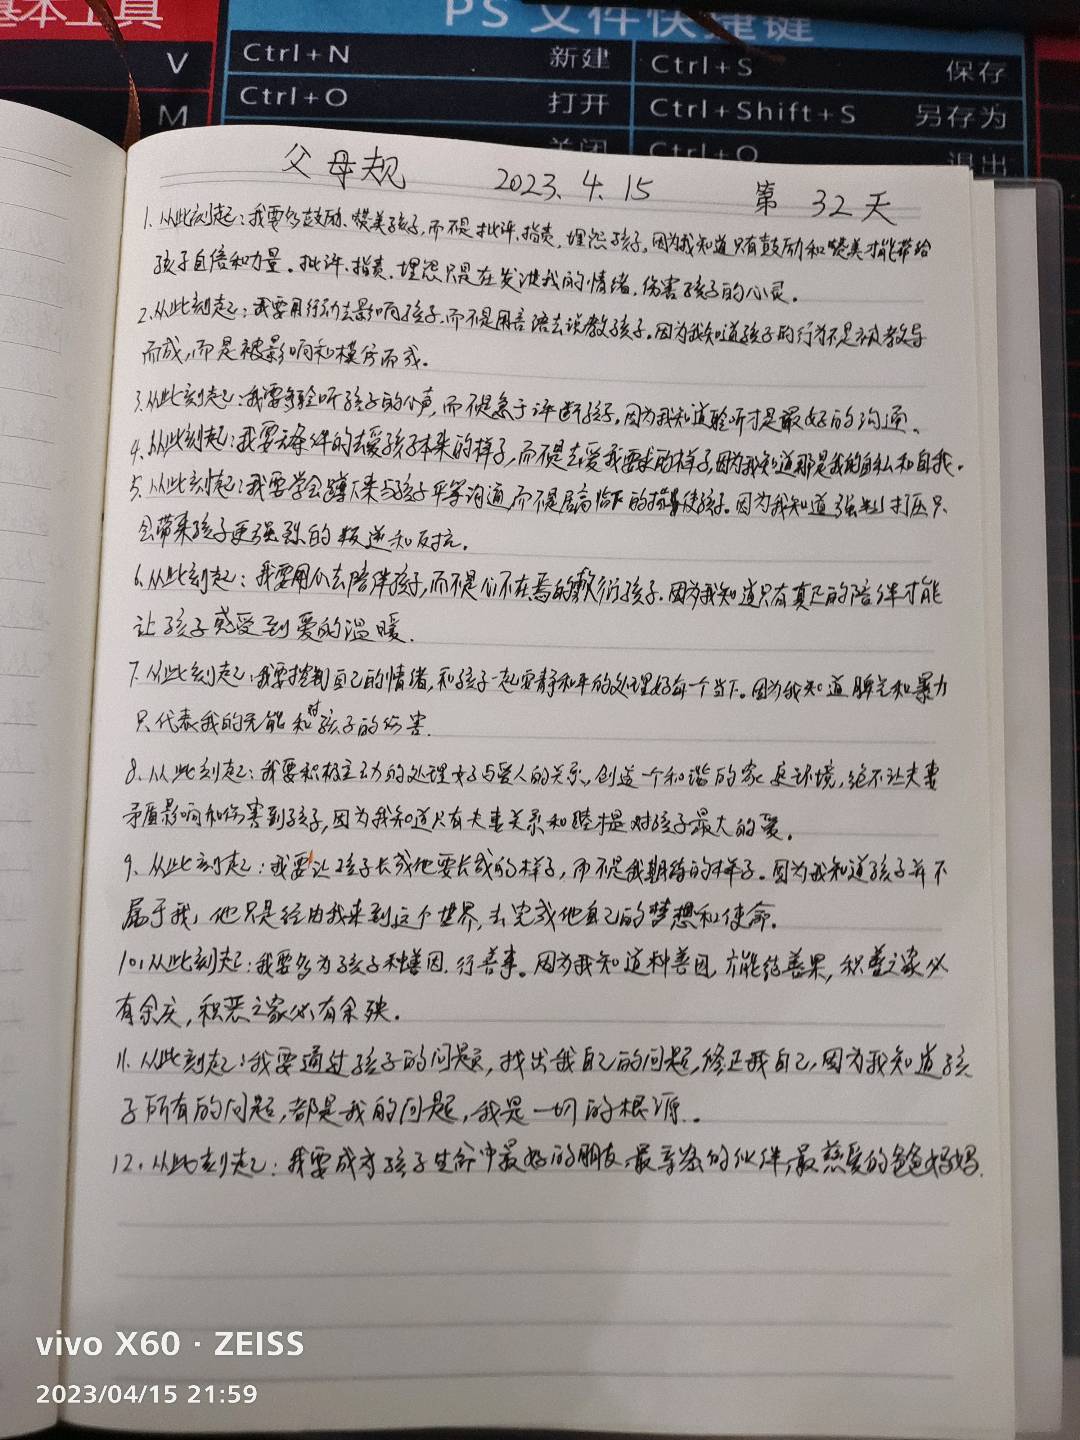 基本工具
PS 文件快捷键
V
Ctrl+N 新建 Ctrl+S 保存
M
Ctrl+O 打开 Ctrl+Shift+S 另存为
关闭 Ctrl+Q 退出
父母规 2023.4.15 第 32 天
1.从此刻起:我要多鼓励、赞美孩子,而不是批评、指责、埋怨孩子。因为我知道只有鼓励和赞美才能带给
孩子自信和力量。批评、指责、埋怨只是在发泄我的情绪,伤害孩子的心灵。
2.从此刻起:我要用行动去影响孩子,而不是用言语去说教孩子。因为我知道孩子的行为不是被教导
而成,而是被影响和模仿而成。
3.从此刻起:我要多聆听孩子的心声,而不是急于评断孩子,因为我知道聆听才是最好的沟通。
4.从此刻起:我要无条件的去爱孩子本来的样子,而不是去爱我要求的样子,因为我知道那是我的自私和自我。
5.从此刻起:我要学会蹲下来与孩子平等沟通,而不是居高临下的指使孩子。因为我知道强制打压只
会带来孩子更强烈的叛逆和反抗。
6.从此刻起:我要用心去陪伴孩子,而不是心不在焉的敷衍孩子。因为我知道只有真正的陪伴才能
让孩子感受到爱的温暖.
7.从此刻起:我要控制自己的情绪,和孩子一起安静和平的处理好每一个当下。因为我知道脾气和暴力
只代表我的无能和对孩子的伤害.
8.从此刻起:我要积极主动的处理好与爱人的关系,创造一个和谐的家庭环境,绝不让夫妻
矛盾影响和伤害到孩子,因为我知道只有夫妻关系和睦才是对孩子最大的爱。
9.从此刻起:我要让孩子长成他要长成的样子,而不是我期待的样子。因为我知道孩子并不
属于我,他只是经由我来到这个世界,去完成他自己的梦想和使命.
10.从此刻起:我要多为孩子种善因,行善事。因为我知道种善因,方能结善果,积善之家必
有余庆,积恶之家必有余殃.
11.从此刻起:我要通过孩子的问题,找出我自己的问题,修正我自己,因为我知道孩
子所有的问题,都是我的问题,我是一切的根源.
12.从此刻起:我要成为孩子生命中最好的朋友,最亲密的伙伴,最慈爱的爸爸妈妈.
vivo X60 · ZEISS
2023/04/15 21:59